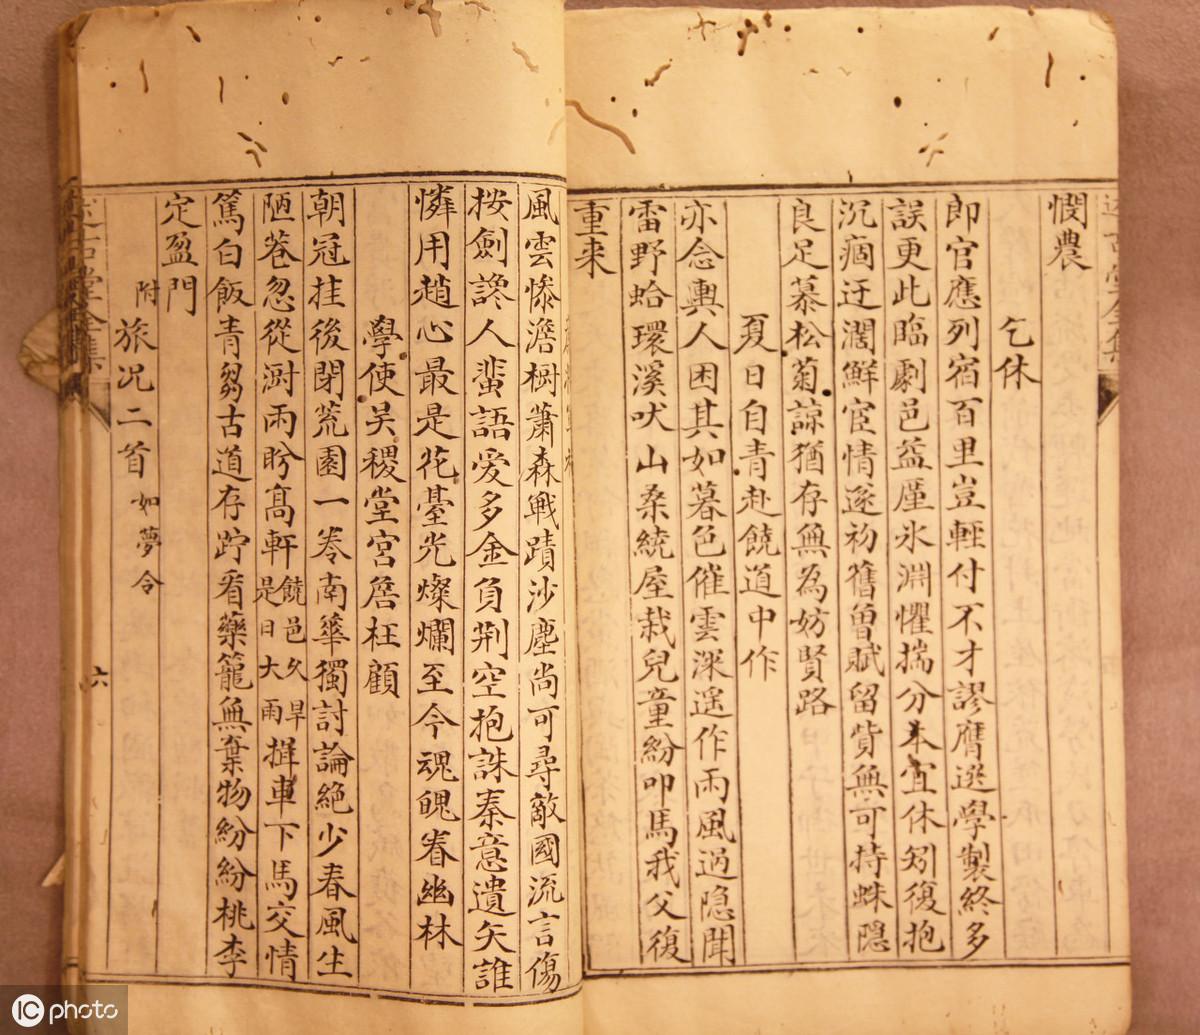 憫農
乞休
郎官應列宿百里豈輕付不才謬膺選學製終多
誤更此臨劇邑益厪氷淵懼揣分本宜休矧復抱
沉痼迂濶鮮宦情遂初舊曾賦留貲無可持蛛隱
良足慕松菊諒猶存無為妨賢路
夏日自青赴饒道中作
亦念輿人困其如暮色催雲深遥作雨風過隐聞
雷野蛤環溪吠山桑繞屋栽兒童紛叩馬我父復
重来
風雲慘澹樹蕭森戦蹟沙塵尚可尋敵國流言傷
按劍讒人蜚語愛多金負荆空抱誅秦意遺矢誰
憐用趙心最是花臺光燦爛至今魂魄眷幽林
學使吴稷堂宮詹枉顧
朝冠挂後閉荒園一岑南華獨討論絶少春風生
陋巷忽從澍雨盻高軒饒邑久旱是日大雨揖車下馬交情
篤白飯青芻古道存跻看藥籠無棄物紛紛桃李
定盈門
附旅况二首如夢令
六
iC photo